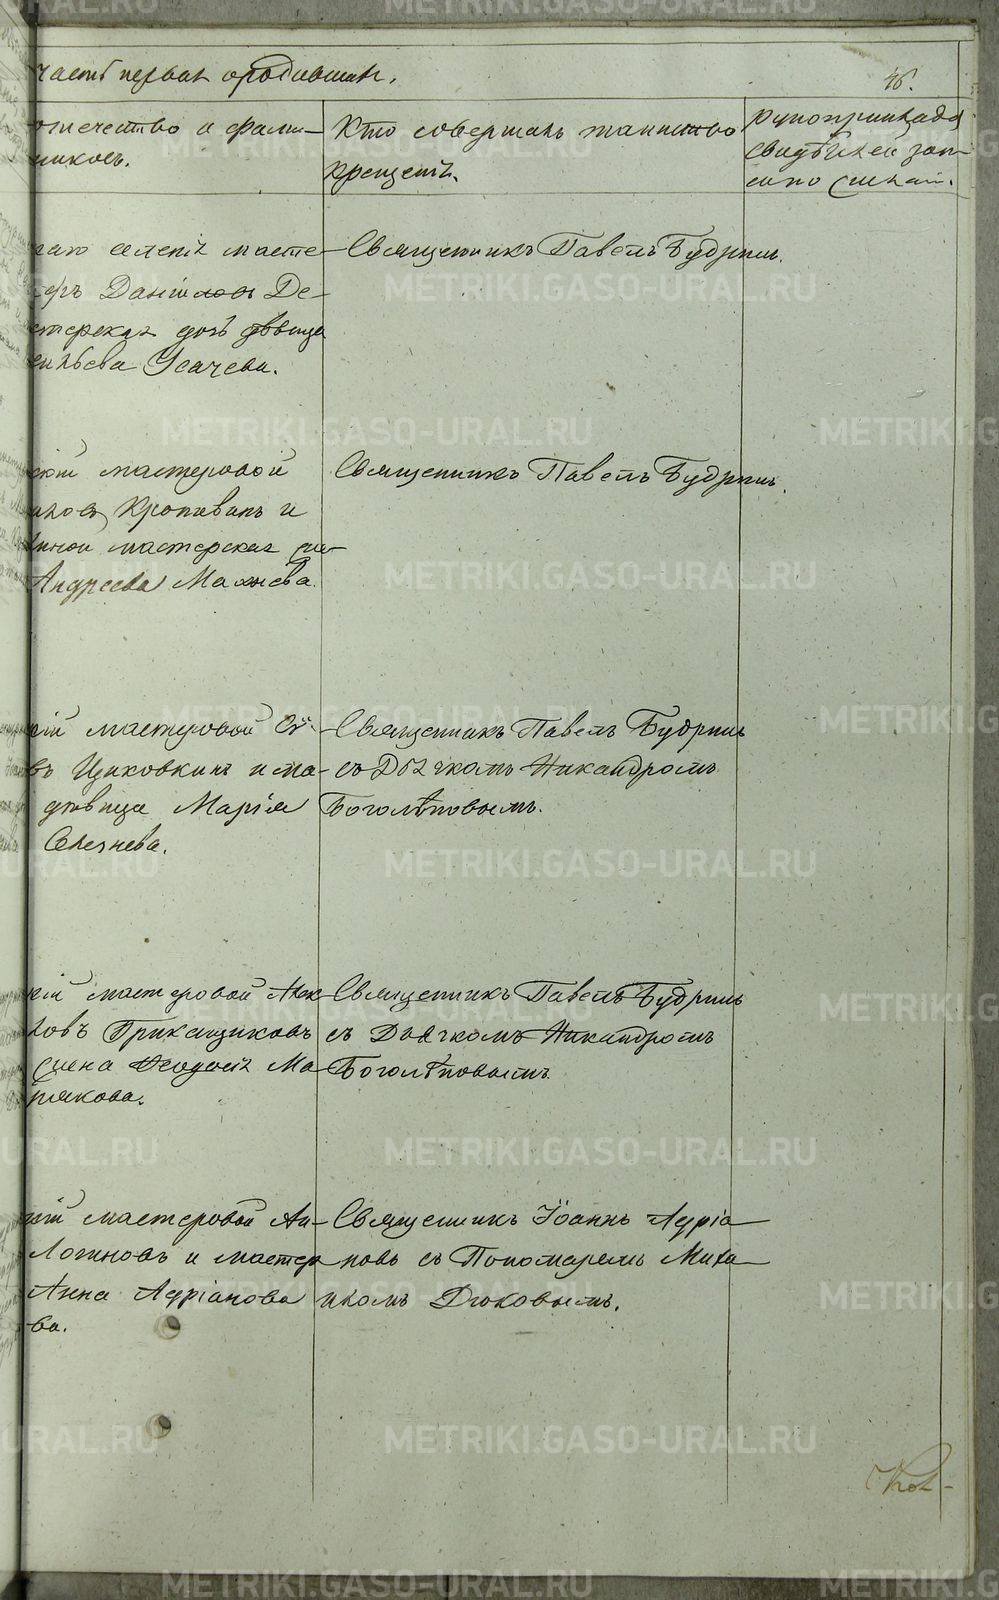 часть первая о родившихся.
46.
отчество и фами-
никовъ.
Кто совершалъ таинство
крещенія.
Рукоприкладс
свидѣтелей зап
си по желан.
селенія масте-
Даниловъ Де-
терская дочь дѣвица
сильева Усачева.
Священникъ Павелъ Будринъ.
скій мастеровой
ковъ Кропивинъ и
мастерская
Андреева Махнева.
Священникъ Павелъ Будринъ.
кій мастеровой
въ Цыковкинъ и ма-
дѣвица Марія
Селезнева.
Священникъ Павелъ Будринъ
съ Дьячкомъ Никандромъ
Боголѣповымъ.
кій мастеровой Алек
ковъ Прикащиковъ
Ѳеодосія Ма-
рякова.
Священникъ Павелъ Будринъ
съ Дьячкомъ Никандромъ
Боголѣповымъ.
кій мастеровой Ан-
Логиновъ и мастер
Анна Адріанова
ва.
Священникъ Іоаннъ Адріа-
новъ съ Пономаремъ Миха-
иломъ Дюковымъ.
METRIKI.GASO-URAL.RU